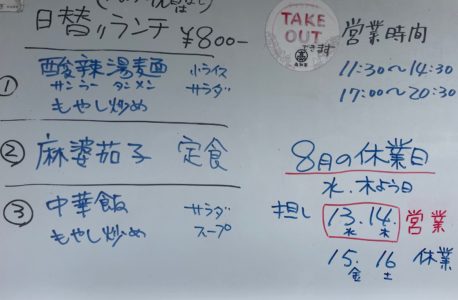 日替リランチ ¥800-
① 酸辣湯麺 小ライス
サンラー タンメン サラダ
もやし炒め
② 麻婆茄子 定食
③ 中華飯 サラダ
もやし炒め スープ
TAKE
OUT
できます
営業時間
11:30〜14:30
17:00〜20:30
8月の休業日
水.木よう日
担し 13.14. 営業
水 木
15. 16 休業
金 土